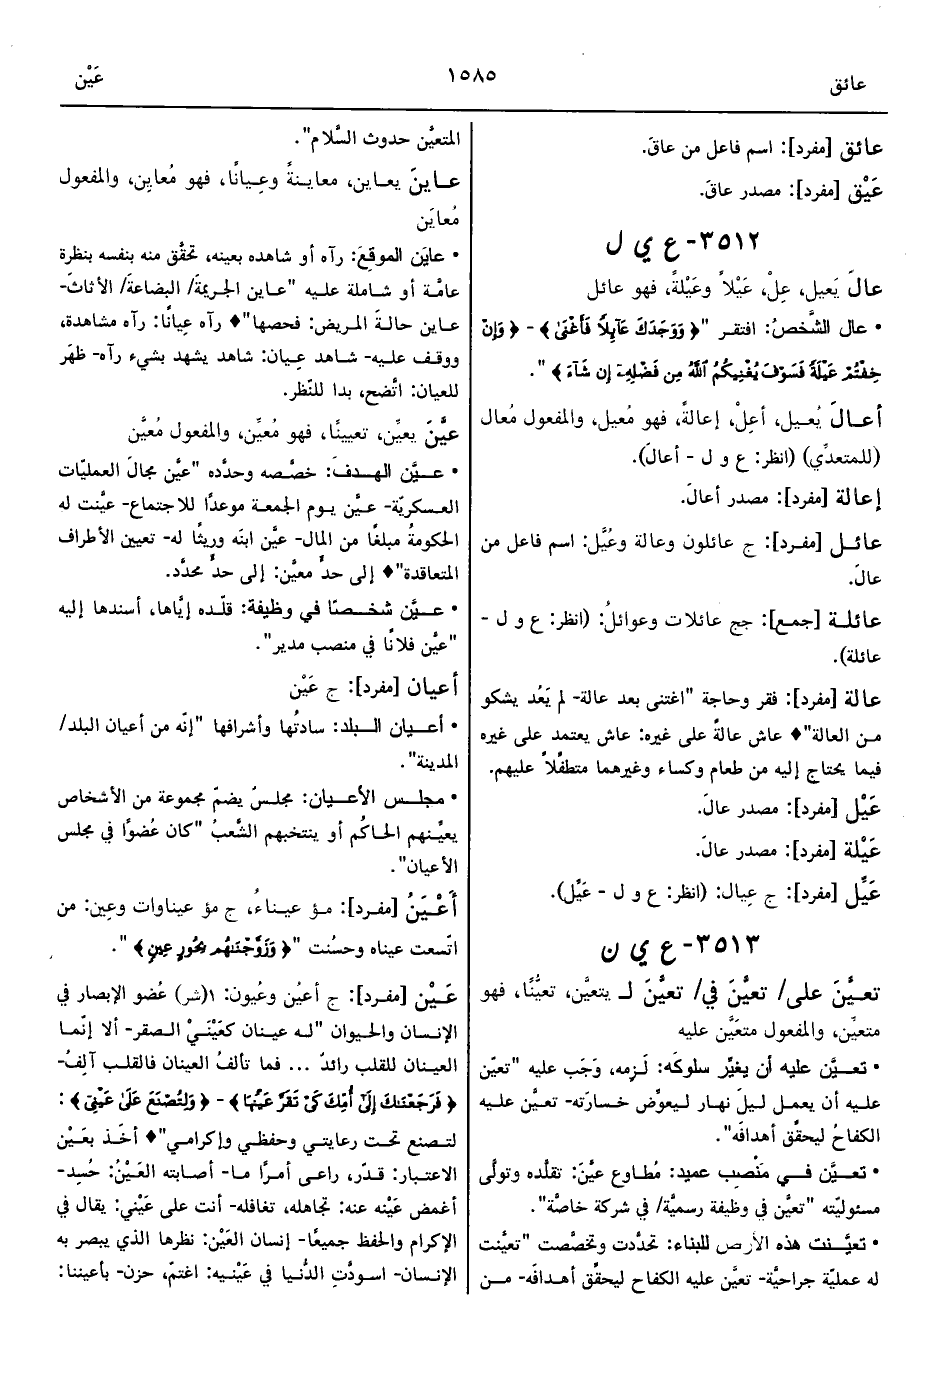 عائق
١٥٨٥
عَيْن
عائق [مفرد]: اسم فاعل من عاقَ.
عَيْق [مفرد]: مصدر عاقَ.
٣٥١٢- ع ي ل
عالَ يَعيل، عِلْ، عَيْلاً وعَيْلةً، فهو عائل
• عال الشَّخصُ: افتقر "﴿ وَوَجَدَكَ عَآئِلاً فَأَغْنَى ﴾- ﴿ وَإِنْ
خِفْتُمْ عَيْلَةً فَسَوْفَ يُغْنِيكُمُ اللهُ مِن فَضْلِهِ إِن شَآءَ ﴾".
أعـالَ يُعـيل، أعِلْ، إعالةً، فهو مُعيل، والمفعول مُعال
(للمتعدِّي) (انظر: ع و ل - أعالَ).
إعالة [مفرد]: مصدر أعالَ.
عائـل [مفـرد]: ج عائلون وعالة وعُيَّل: اسم فاعل من
عالَ.
عائلـة [جمع]: جج عائلات وعوائلُ: (انظر: ع و ل -
عائلة).
عالة [مفرد]: فقر وحاجة "اغتنى بعد عالة- لم يَعُد يشكو
مـن العالة"♦ عاش عالةً على غيره: عاش يعتمد على غيره
فيما يحتاج إليه من طعام وكساء وغيرهما متطفِّلاً عليهم.
عَيْل [مفرد]: مصدر عالَ.
عَيْلة [مفرد]: مصدر عالَ.
عَيِّل [مفرد]: ج عِيال: (انظر: ع و ل - عَيِّل).
٣٥١٣- ع ي ن
تعـيَّنَ على/ تعيَّنَ في/ تعيَّنَ لـ يتعيَّن، تعيُّنًا، فهو
متعيِّن، والمفعول متعَيَّن عليه
• تعـيَّن عليه أن يغيِّر سلوكَه: لَـزِمه، وَجَب عليه "تعيّن
علـيه أن يعمـل لـيلَ نهار ليعوِّض خسارته- تعـيَّن علـيه
الكفاحُ ليحقِّق أهدافَه".
• تعـيَّن فـي منْصِب عميد: مُطاوع عيَّنَ: تقلّده وتولَّى
مسئوليّته "تعيَّن في وظيفة رسميَّة/ في شركة خاصَّة".
• تعيَّـنت هذه الأرض للبناء: تحدَّدت وتخصَّصت "تعيَّنت
له عمليّة جراحيَّة- تعيَّن عليه الكفاح ليحقِّق أهدافَه- مـن
المتعيَّن حدوث السَّلام".
عـاينَ يعـاين، معاينةً وعِـيانًا، فهو مُعاين، والمفعول
مُعايَن
• عايَن الموقعَ: رآه أو شاهده بعينه، تحقَّق منه بنفسه بنظرة
عامَّـة أو شـاملة علـيه "عـاين الجريمةَ/ البضاعةَ/ الأثاثَ-
عـاين حالـةَ المـريض: فحصها"♦ رآه عِيانًا: رآه مشاهدة،
ووقف علـيه- شـاهد عِـيان: شاهد يشهد بشيء رآه- ظهَر
للعيان: اتَّضح، بدا للنَّظر.
عيَّنَ يعيِّن، تعيينًا، فهو مُعيِّن، والمفعول مُعيَّن
• عـيَّن الهـدفَ: خصَّصه وحدَّده "عيَّن مجالَ العمليّات
العـسكريّة- عـيَّن يـوم الجمعـة موعدًا للاجتماع- عيَّنت له
الحكومةُ مبلغًا من المال- عيَّن ابنَه وريثًا له- تعيين الأطراف
المتعاقدة"♦ إلى حدٍّ معيَّن: إلى حدٍّ محدَّد.
• عـيَّن شخـصًا في وظيفة: قلّده إيَّاها، أسندها إليه
"عيَّن فلانًا في منصب مدير".
أعيان [مفرد]: ج عَيْن
• أعـيان الـبلد: سادتُها وأشرافها "إنّه من أعيان البلد/
المدينة".
• مجلـس الأعـيان: مجلـسٌ يضمّ مجموعة من الأشخاص
يعيِّـنهم الحـاكُم أو ينتخبهم الشَّعبُ "كان عُضوًا في مجلس
الأعيان".
أَعْيَنُ [مفـرد]: مـؤ عيـناءُ، ج مؤ عيناوات وعِين: من
اتّسعت عيناه وحسُنت "﴿ وَزَوَّجْنَاهُم بِحُورٍ عِينٍ ﴾".
عَـيْن [مفـرد]: ج أعيُن وعُيون: ١(شر) عُضو الإبصار في
الإنـسان والحـيوان "لـه عينـان كعَيْنَيْ الـصقر- ألا إنّمـا
العيـنان للقلب رائدٌ ... فما تألفُ العينان فالقلب آلِفُ-
﴿ فَرَجَعْنَاكَ إِلَى أُمِّكَ كَيْ تَقَرَّ عَيْنُهَا ﴾- ﴿ وَلِتُصْنَعَ عَلَى عَيْنِي ﴾:
لتـصنع تحـت رعايتـي وحفظي وإكرامي"♦ أخَـذ بعَـيْن
الاعتبار: قدّر، راعى أمـرًا مـا- أصابته العَيْنُ: حُسِد-
أغمض عَيْنه عنه: تجاهله، تغافله- أنت على عَيْني: يقال في
الإكرام والحفظ جميعًا- إنسان العَيْن: نظرها الذي يبصر به
الإنسان- اسودّتِ الدُّنيا في عَيْنـيه: اغتمّ، حزن- بأعيننا: